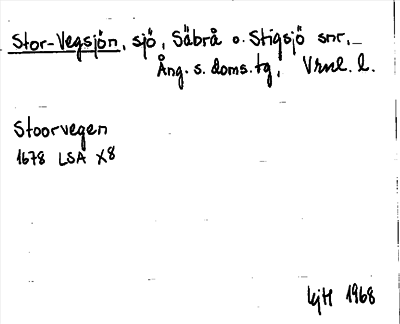 Stor-Vegsjön, sjö, Säbrå o. Stigsjö snr,
Ång. s. doms.tg, Vrnl. l.
Stoorvegen
1678 LSA X8
kjH 1968